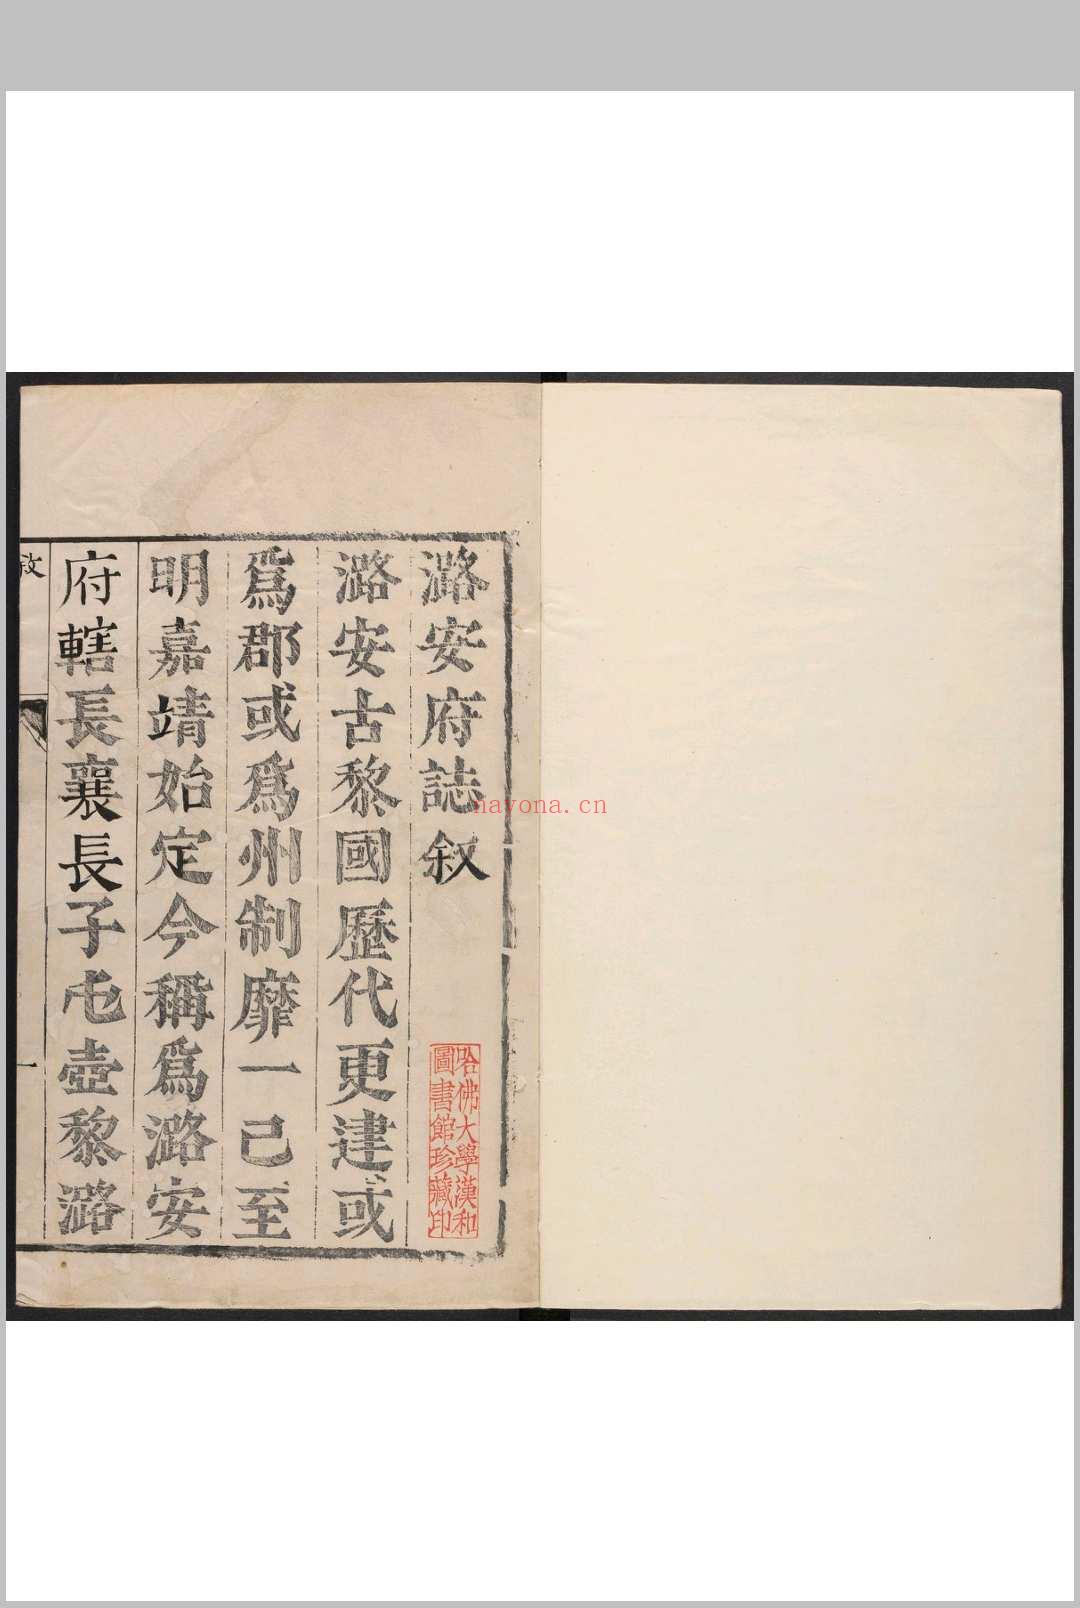 潞安府誌叙
潞安古黎國歷代更建或
爲郡或爲州制靡一己至
明嘉靖始定今稱爲潞安
府轄長襄長子屯壺黎潞
哈佛大學漢和
圖書館珍藏印
nayona.cn
一